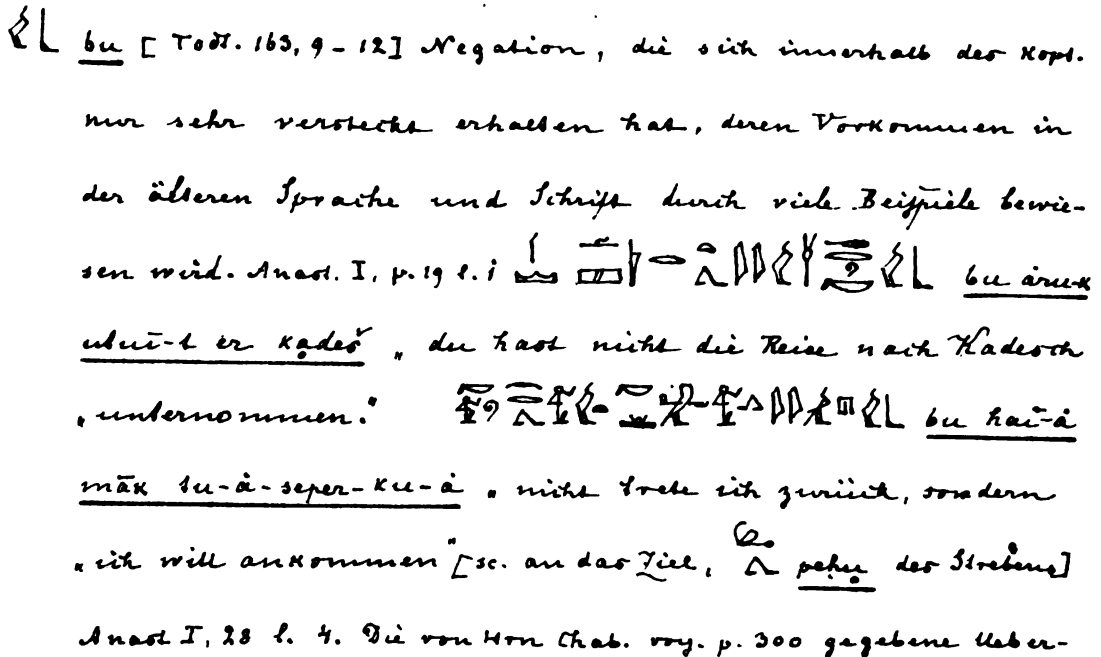 bu [Todt. 163, 9-12] Negation, die sich innerhalb des Kopt.
nur sehr versteckt erhalten hat, deren Vorkommen in
der älteren Sprache und Schrift durch viele Beispiele bewie-
sen wird. Anast. I, p. 19 l. 1 bu àru-k
er ḳadeš „du hast nicht die Reise nach Kadesch
„unternommen.“ bu haī-à
māk tu-à-seper-ku-à „nicht trete ich zurück, sondern
„ich will ankommen“ [sc. an das Ziel, peḥu des Strebens]
Anast I, 28 l. 4. Die von Hrn Chab. voy. p. 300 gegebene Ueber-